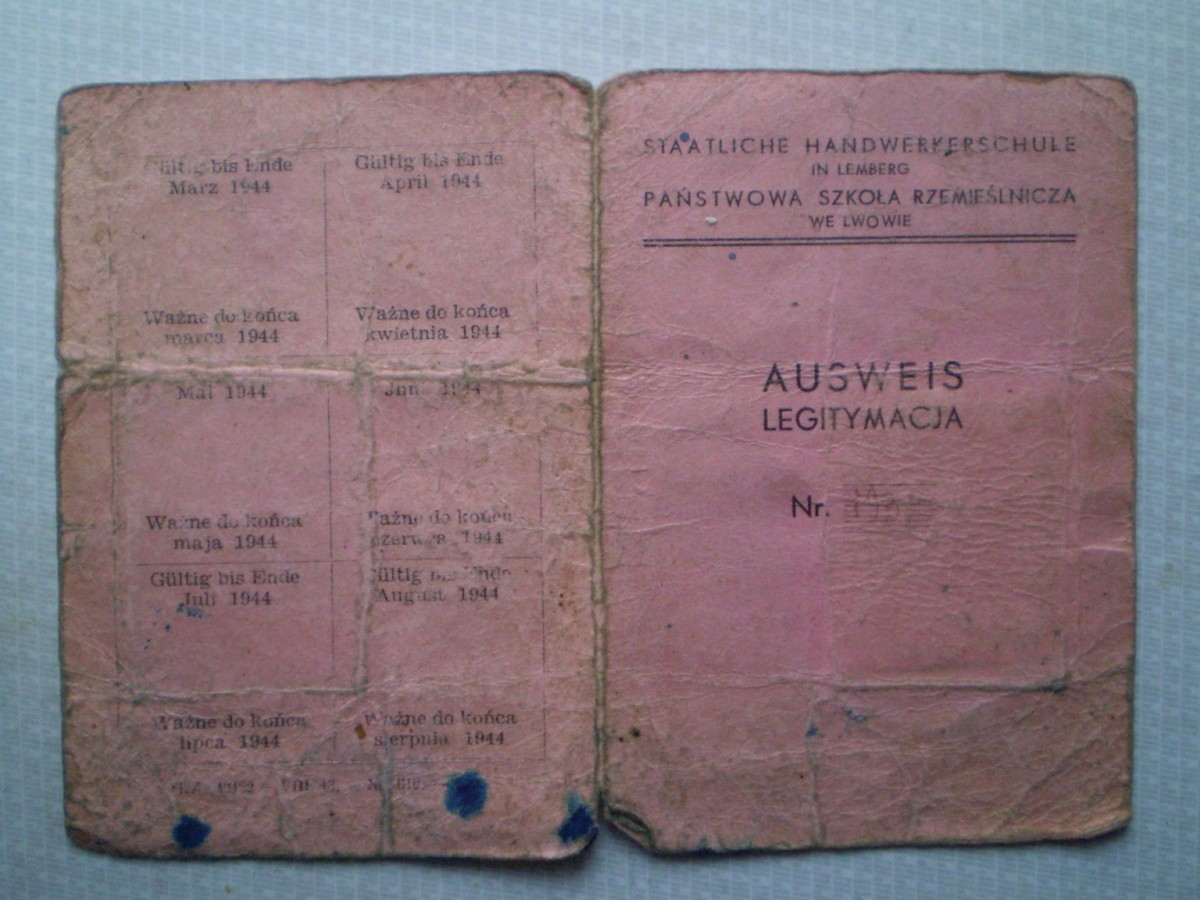 Gültig bis Ende
März 1944
Ważne do końca
marca 1944
Gültig bis Ende
April 1944
Ważne do końca
kwietnia 1944
Mai 1944
Ważne do końca
maja 1944
Juni 1944
Ważne do końca
czerwca 1944
Gültig bis Ende
Juli 1944
Ważne do końca
lipca 1944
Gültig bis Ende
August 1944
Ważne do końca
sierpnia 1944
STAATLICHE HANDWERKERSCHULE
IN LEMBERG
PAŃSTWOWA SZKOŁA RZEMIEŚLNICZA
WE LWOWIE
AUSWEIS
LEGITYMACJA
Nr.